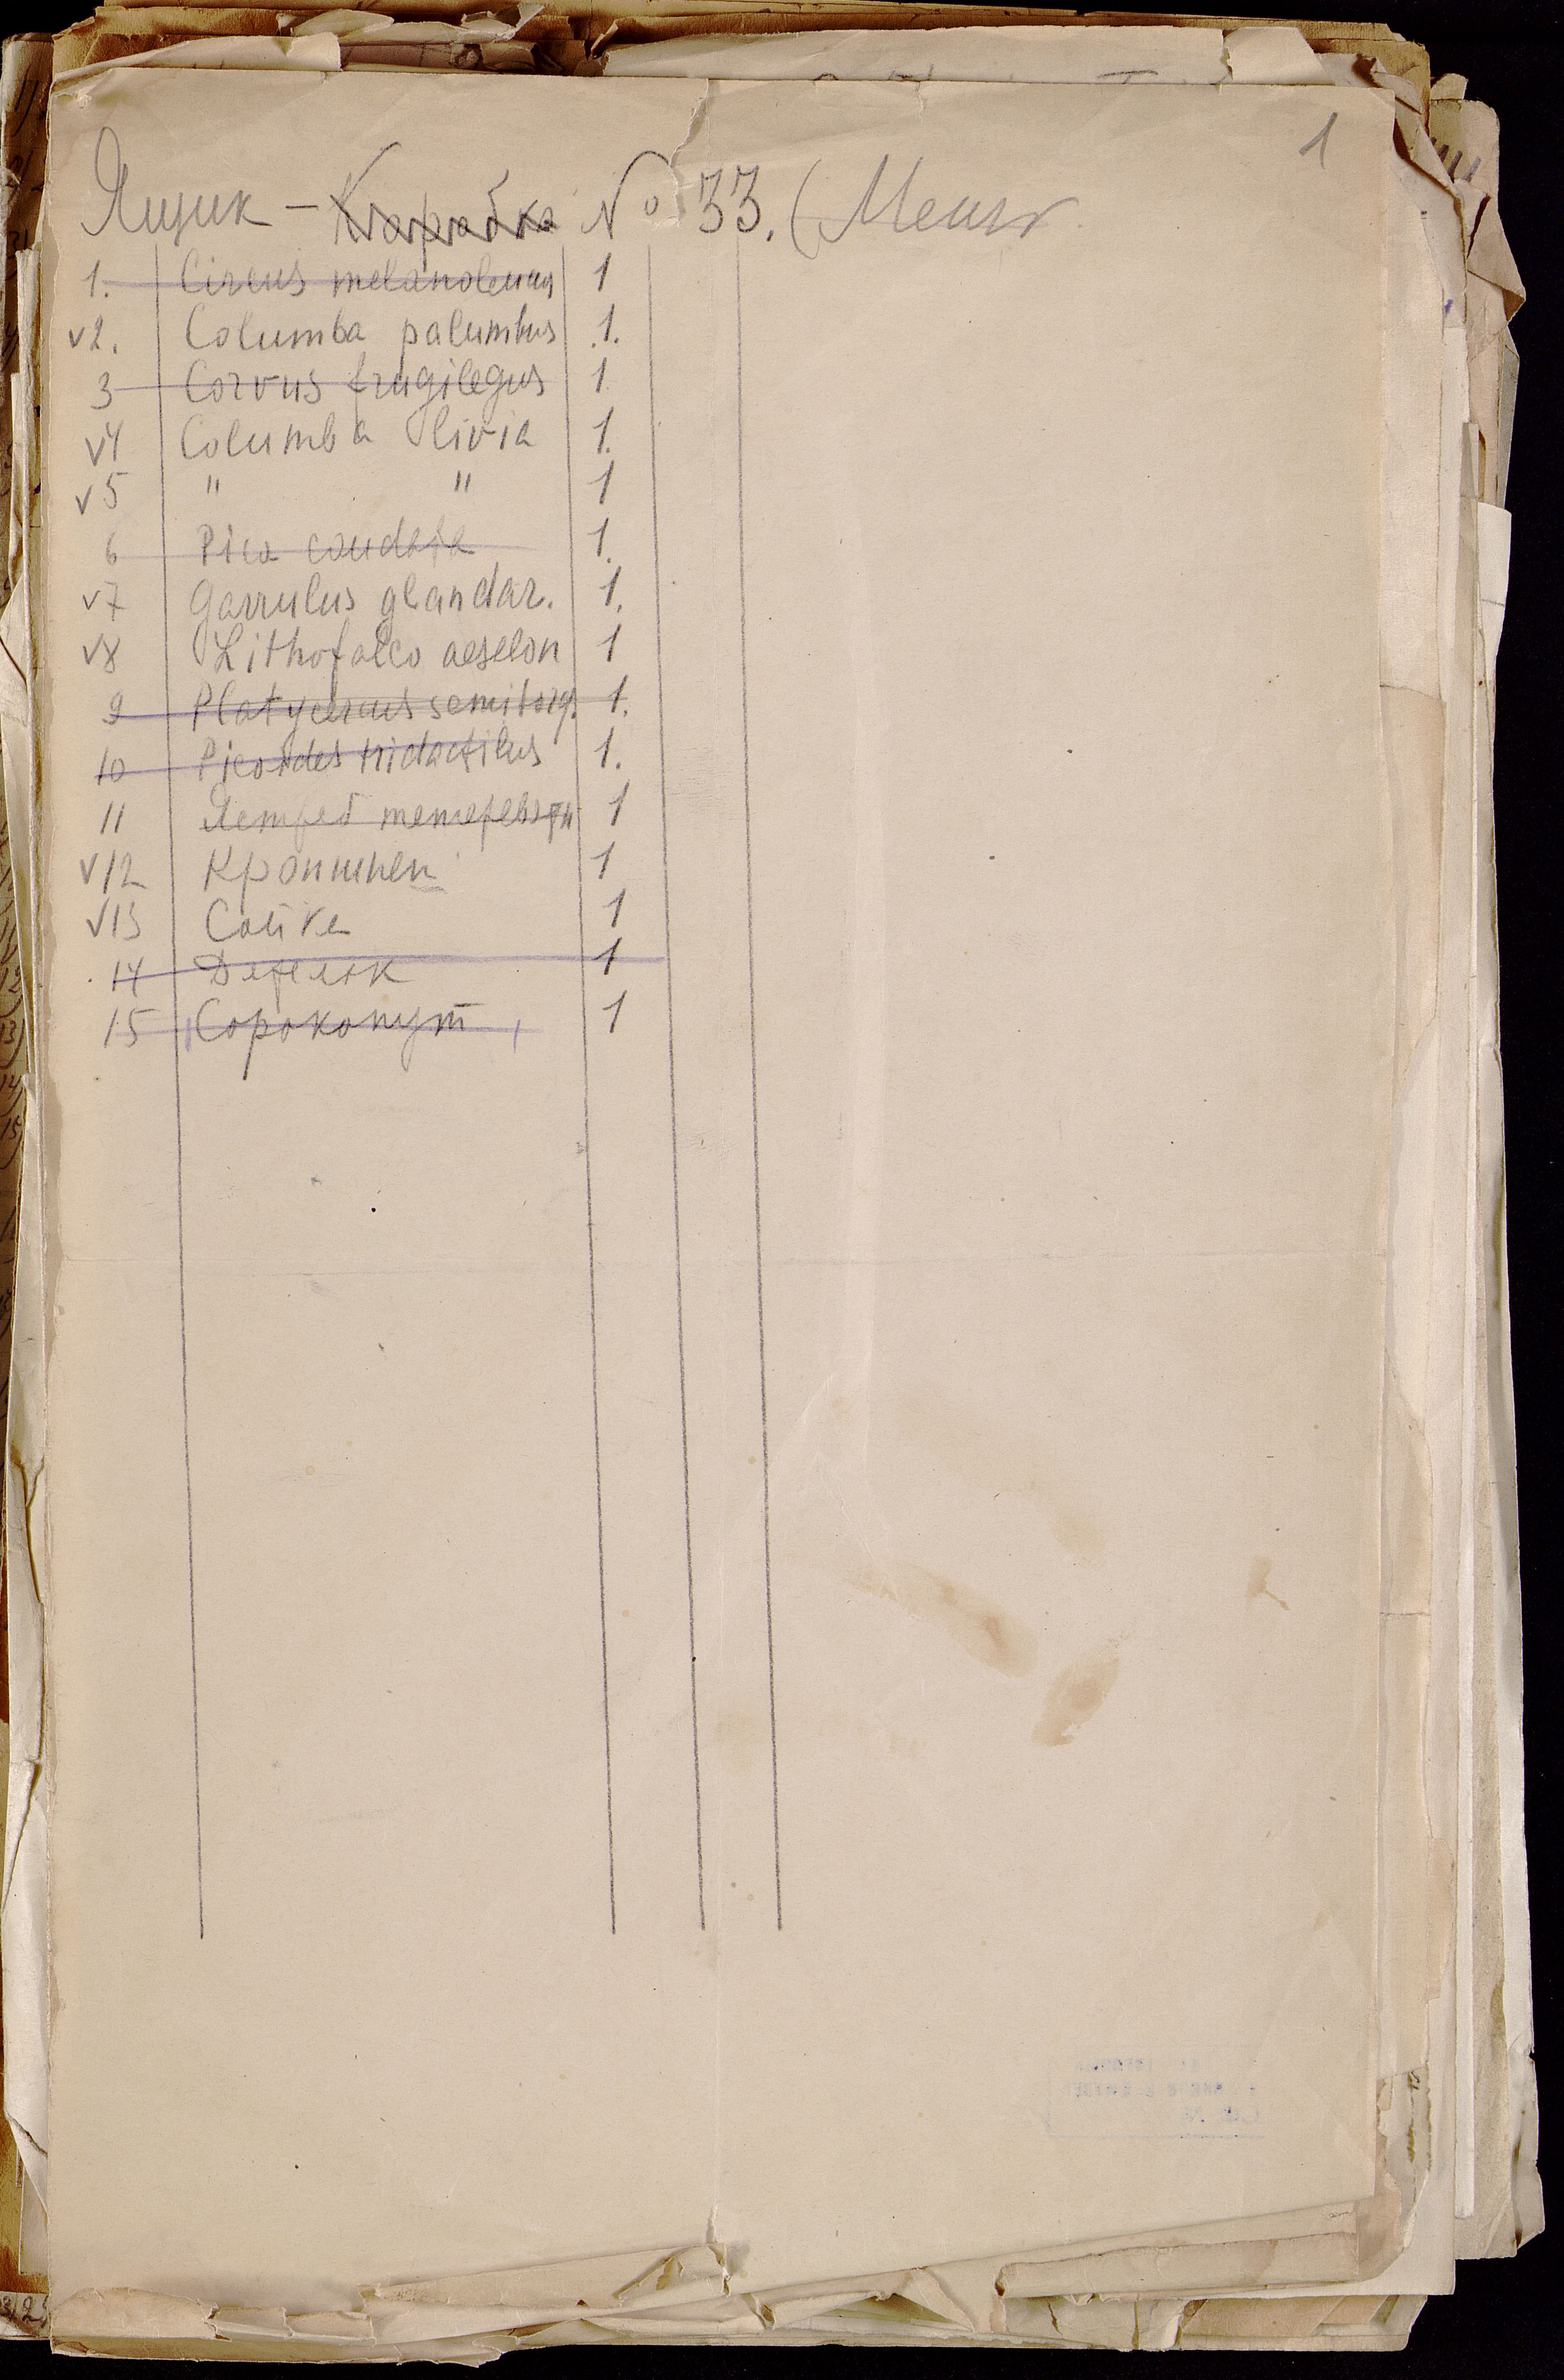 1
Ящик - Карабка № 33. (
1. Circus melanoleucus 1
v2. Columba palumbus 1.
3 Corvus frugilegus 1
v4 Columba livia 1.
v5 " " 1
6 Pica caudata 1.
v7 Garrulus glandar. 1.
v8 Lithofalco aeselon 1
9 Platycercus semitorq. 1.
10 Picoides tridactilus 1.
11 Ястреб 1
v12 Кроншнеп 1
v13 Сойка 1
14 1
15 Сорокопут 1